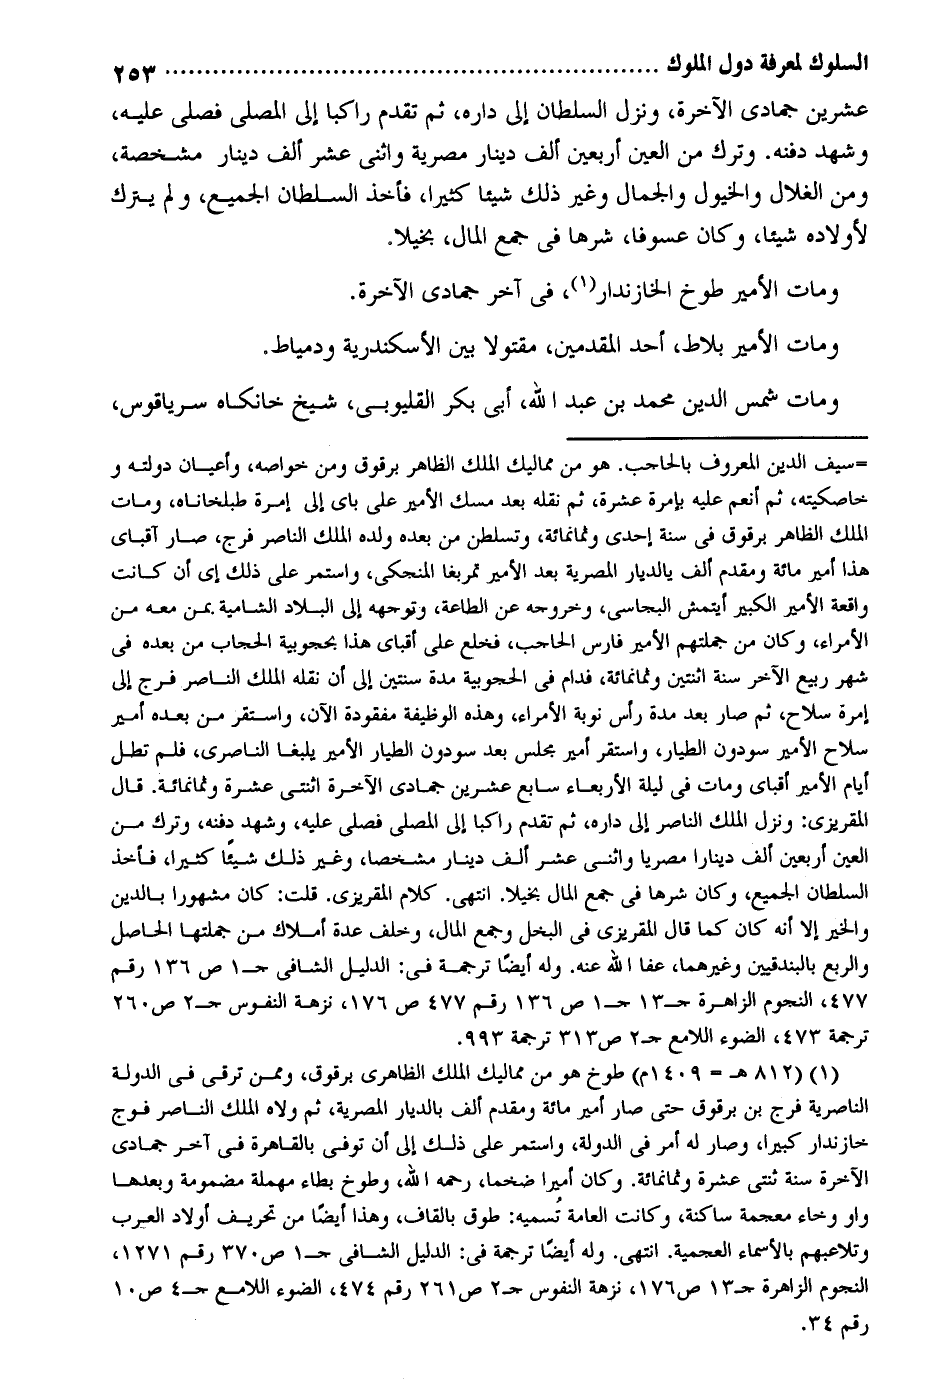 السلوك لمعرفة دول الملوك ............................................................... ٢٥٣
عشرين جمادى الآخرة، ونزل السلطان إلى داره، ثم تقدم راكبا إلى المصلى فصلى عليه،
وشهد دفنه. وترك من العين أربعين ألف دينار مصرية واثنى عشر ألف دينار مشخصة،
ومن الغلال والخيول والجمال وغير ذلك شيئا كثيرا، فأخذ السلطان الجميع، ولم يترك
لأولاده شيئا، وكان عسوفا، شرها فى جمع المال، بخيلا.
ومات الأمير طوخ الخازندار(١)، فى آخر جمادى الآخرة.
ومات الأمير بلاط، أحد المقدمين، مقتولا بين الأسكندرية ودمياط.
ومات شمس الدين محمد بن عبد الله، أبى بكر القليوبى، شيخ خانكاه سرياقوس،
=سيف الدين المعروف بالحاجب. هو من مماليك الملك الظاهر برقوق ومن خواصه، وأعيان دولته و
خاصكيته، ثم أنعم عليه بإمرة عشرة، ثم نقله بعد مسك الأمير على باى إلى إمرة طبلخاناه، ومات
الملك الظاهر برقوق فى سنة إحدى وثمانمائة، وتسلطن من بعده ولده الملك الناصر فرج، صار آقباى
هذا أمير مائة ومقدم ألف يالديار المصرية بعد الأمير تمربغا المنجكى، واستمر على ذلك إى أن كانت
واقعة الأمير الكبير أيتمش البجاسى، وخروجه عن الطاعة، وتوجهه إلى البلاد الشامية بمن معه من
الأمراء، وكان من جملتهم الأمير فارس الحاجب، فخلع على أقباى هذا بحجوبية الحجاب من بعده فى
شهر ربيع الآخر سنة اثنتين وثمانمائة، فدام فى الحجوبية مدة سنتين إلى أن نقله الملك الناصر فرج إلى
إمرة سلاح، ثم صار بعد مدة رأس نوبة الأمراء، وهذه الوظيفة مفقودة الآن، واستقر من بعده أمير
سلاح الأمير سودون الطيار، واستقر أمير مجلس بعد سودون الطيار الأمير يلبغا الناصرى، فلم تطل
أيام الأمير أقباى ومات فى ليلة الأربعاء سابع عشرين جمادى الآخرة اثنتى عشرة وثمانمائة. قال
المقريزى: ونزل الملك الناصر إلى داره، ثم تقدم راكبا إلى المصلى فصلى عليه، وشهد دفنه، وترك من
العين أربعين ألف دينارا مصريا واثنى عشر ألف دينار مشخصا، وغير ذلك شيئًا كثيرا، فأخذ
السلطان الجميع، وكان شرها فى جمع المال بخيلا. انتهى. كلام المقريزى. قلت: كان مشهورا بالدين
والخير إلا أنه كان كما قال المقريزى فى البخل وجمع المال، وخلف عدة أملاك من جملتها الحاصل
والربع بالبندقيين وغيرهما، عفا الله عنه. وله أيضًا ترجمة فى: الدليل الشافى حـ١ ص ١٣٦ رقم
٤٧٧، النجوم الزاهرة حـ١٣ حـ١ ص ١٣٦ رقم ٤٧٧ ص ١٧٦، نزهة النفوس حـ٢ ص٢٦٠
ترجمة ٤٧٣، الضوء اللامع حـ٢ ص٣١٣ ترجمة ٩٩٣.
(١) (٨١٢ هـ = ١٤٠٩م) طوخ هو من مماليك الملك الظاهرى برقوق، وممن ترقى فى الدولة
الناصرية فرج بن برقوق حتى صار أمير مائة ومقدم ألف بالديار المصرية، ثم ولاه الملك الناصر فوج
خازندار كبيرا، وصار له أمر فى الدولة، واستمر على ذلك إلى أن توفى بالقاهرة فى آخر جمادى
الآخرة سنة ثنتى عشرة وثمانمائة. وكان أميرا ضخما، رحمه الله، وطوخ بطاء مهملة مضمومة وبعدها
واو وخاء معجمة ساكنة، وكانت العامة تُسميه: طوق بالقاف، وهذا أيضًا من تحريف أولاد العرب
وتلاعبهم بالأسماء العجمية. انتهى. وله أيضًا ترجمة فى: الدليل الشافى حـ١ ص٣٧٠ رقم ١٢٧١،
النجوم الزاهرة حـ١٣ ص١٧٦، نزهة النفوس حـ٢ ص٢٦١ رقم ٤٧٤، الضوء اللامع حـ٤ ص١٠
رقم ٣٤.